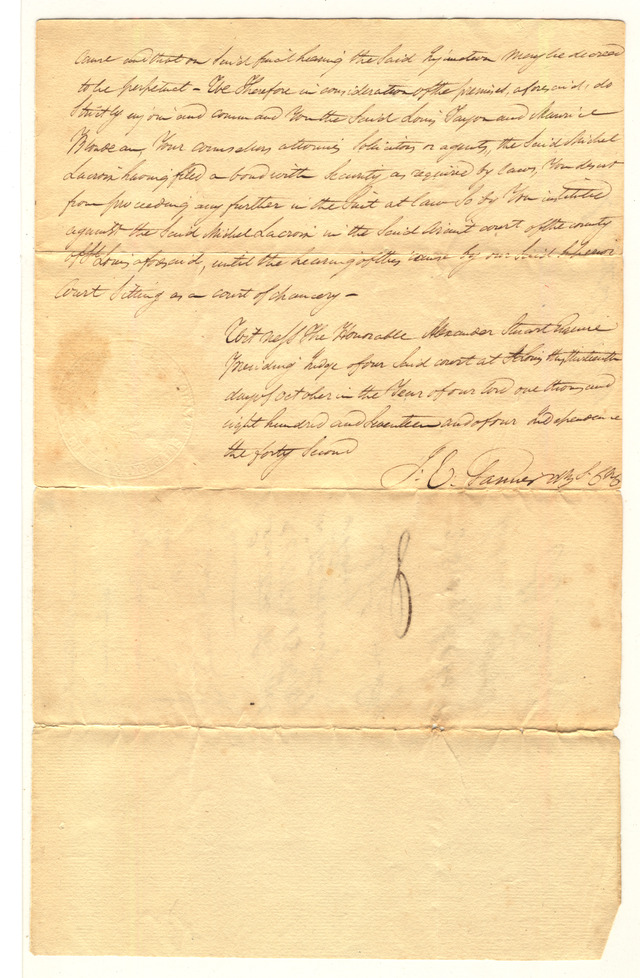 cause and that on said final hearing the Said Injunction may be decreed
to be perpetual - We Therefore in consideration of the premises, aforesaid, do
Strictly enjoin and command You the Said Louis and Maurice
Your counselors attornies Solicitors or agents, the Said Michel
Lacroix having filed a bond with Security as required by law, You desist
from proceeding any further in the Suit at law So by You instituted
against the Said Michel Lacroix in the Said Circuit court of the county
of St Louis aforesaid, until the hearing of this cause by our Said Superior
Court Sitting as a court of chancery -
Witness The Honorable Alexander Stuart Esquire
Presiding Judge of our Said court at St Louis this thirteenth
day of October in the Year of our lord one thousand
eight hundred and Seventeen and of our Independence
the forty Second
J. E.